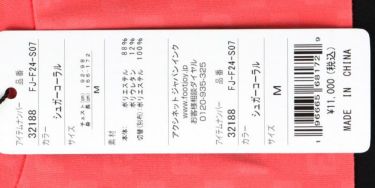 品番 FJ-F24-S07
アイテムナンバー 32188
カラー シュガーコーラル
サイズ M
チェスト(cm) 92-98
身長(cm) 166-172
素材
本体 ポリエステル 88%
ポリウレタン 12%
切替(別布) ポリエステル 100%
アクシネット ジャパンインク
www.footjoy.com
お客様相談ダイヤル
0120-935-325
品番 FJ-F24-S07
アイテムナンバー 32188
カラー シュガーコーラル
サイズ M
1 96665 68172 9
¥11,000(税込)
MADE IN CHINA